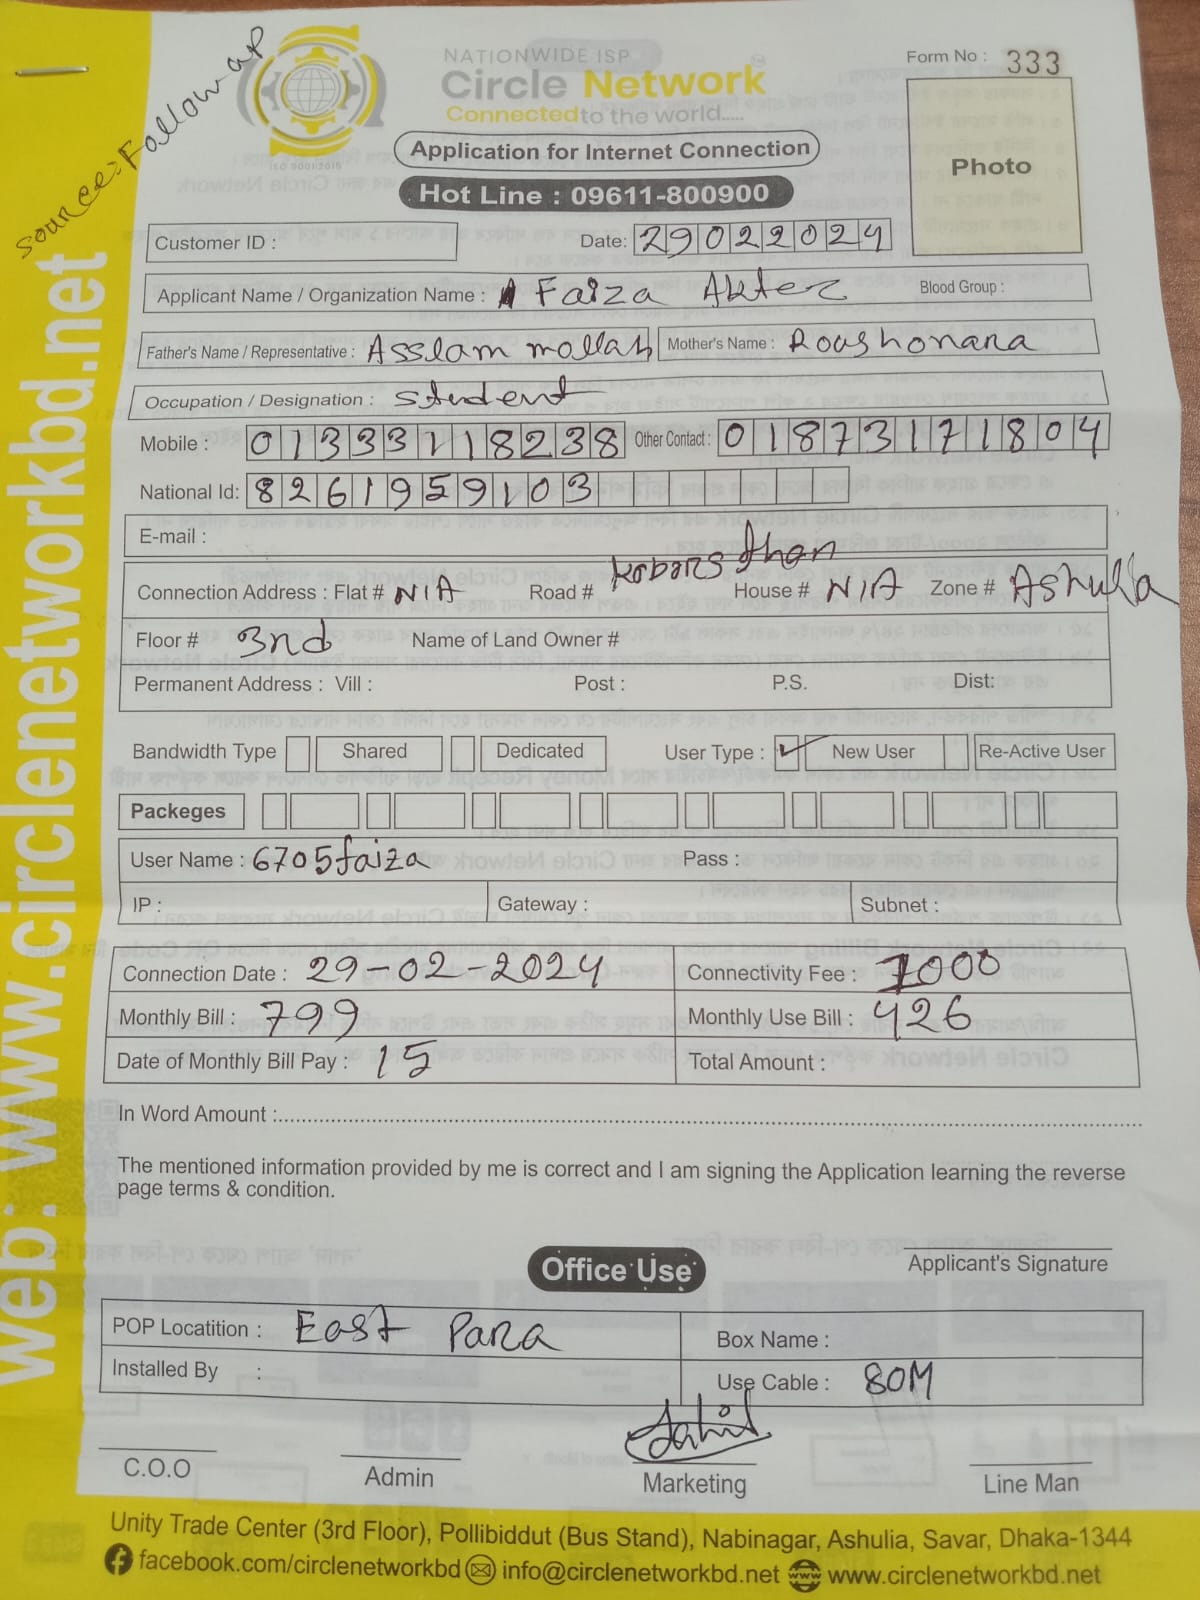 source: Follow up
NATIONWIDE ISP
Circle Network
Connected to the world.....
ISO 9001:2015
Form No : 333
Photo
Application for Internet Connection
Hot Line : 09611-800900
Customer ID :
Date: 29022024
Applicant Name / Organization Name : Faiza Akter
Blood Group :
Father's Name / Representative : Asslam mollah Mother's Name : Roushonara
Occupation / Designation : student
Mobile : 01333118238 Other Contact : 01873171804
National Id: 8261959103
E-mail :
Connection Address : Flat # N/A Road # kobarsthan House # N/A Zone # Ashulia
Floor # 3nd Name of Land Owner #
Permanent Address : Vill : Post : P.S. Dist:
Bandwidth Type Shared Dedicated User Type : ✓ New User Re-Active User
Packeges
User Name : 6705faiza Pass :
IP : Gateway : Subnet :
Connection Date : 29-02-2024 Connectivity Fee : 1000
Monthly Bill : 799 Monthly Use Bill : 426
Date of Monthly Bill Pay : 15 Total Amount :
In Word Amount :
The mentioned information provided by me is correct and I am signing the Application learning the reverse
page terms & condition.
Office Use
Applicant's Signature
POP Locatition : East Para Box Name :
Installed By : Use Cable : 80M
C.O.O Admin Marketing Line Man
Unity Trade Center (3rd Floor), Pollibiddut (Bus Stand), Nabinagar, Ashulia, Savar, Dhaka-1344
facebook.com/circlenetworkbd info@circlenetworkbd.net www.circlenetworkbd.net
web: www.circlenetworkbd.net